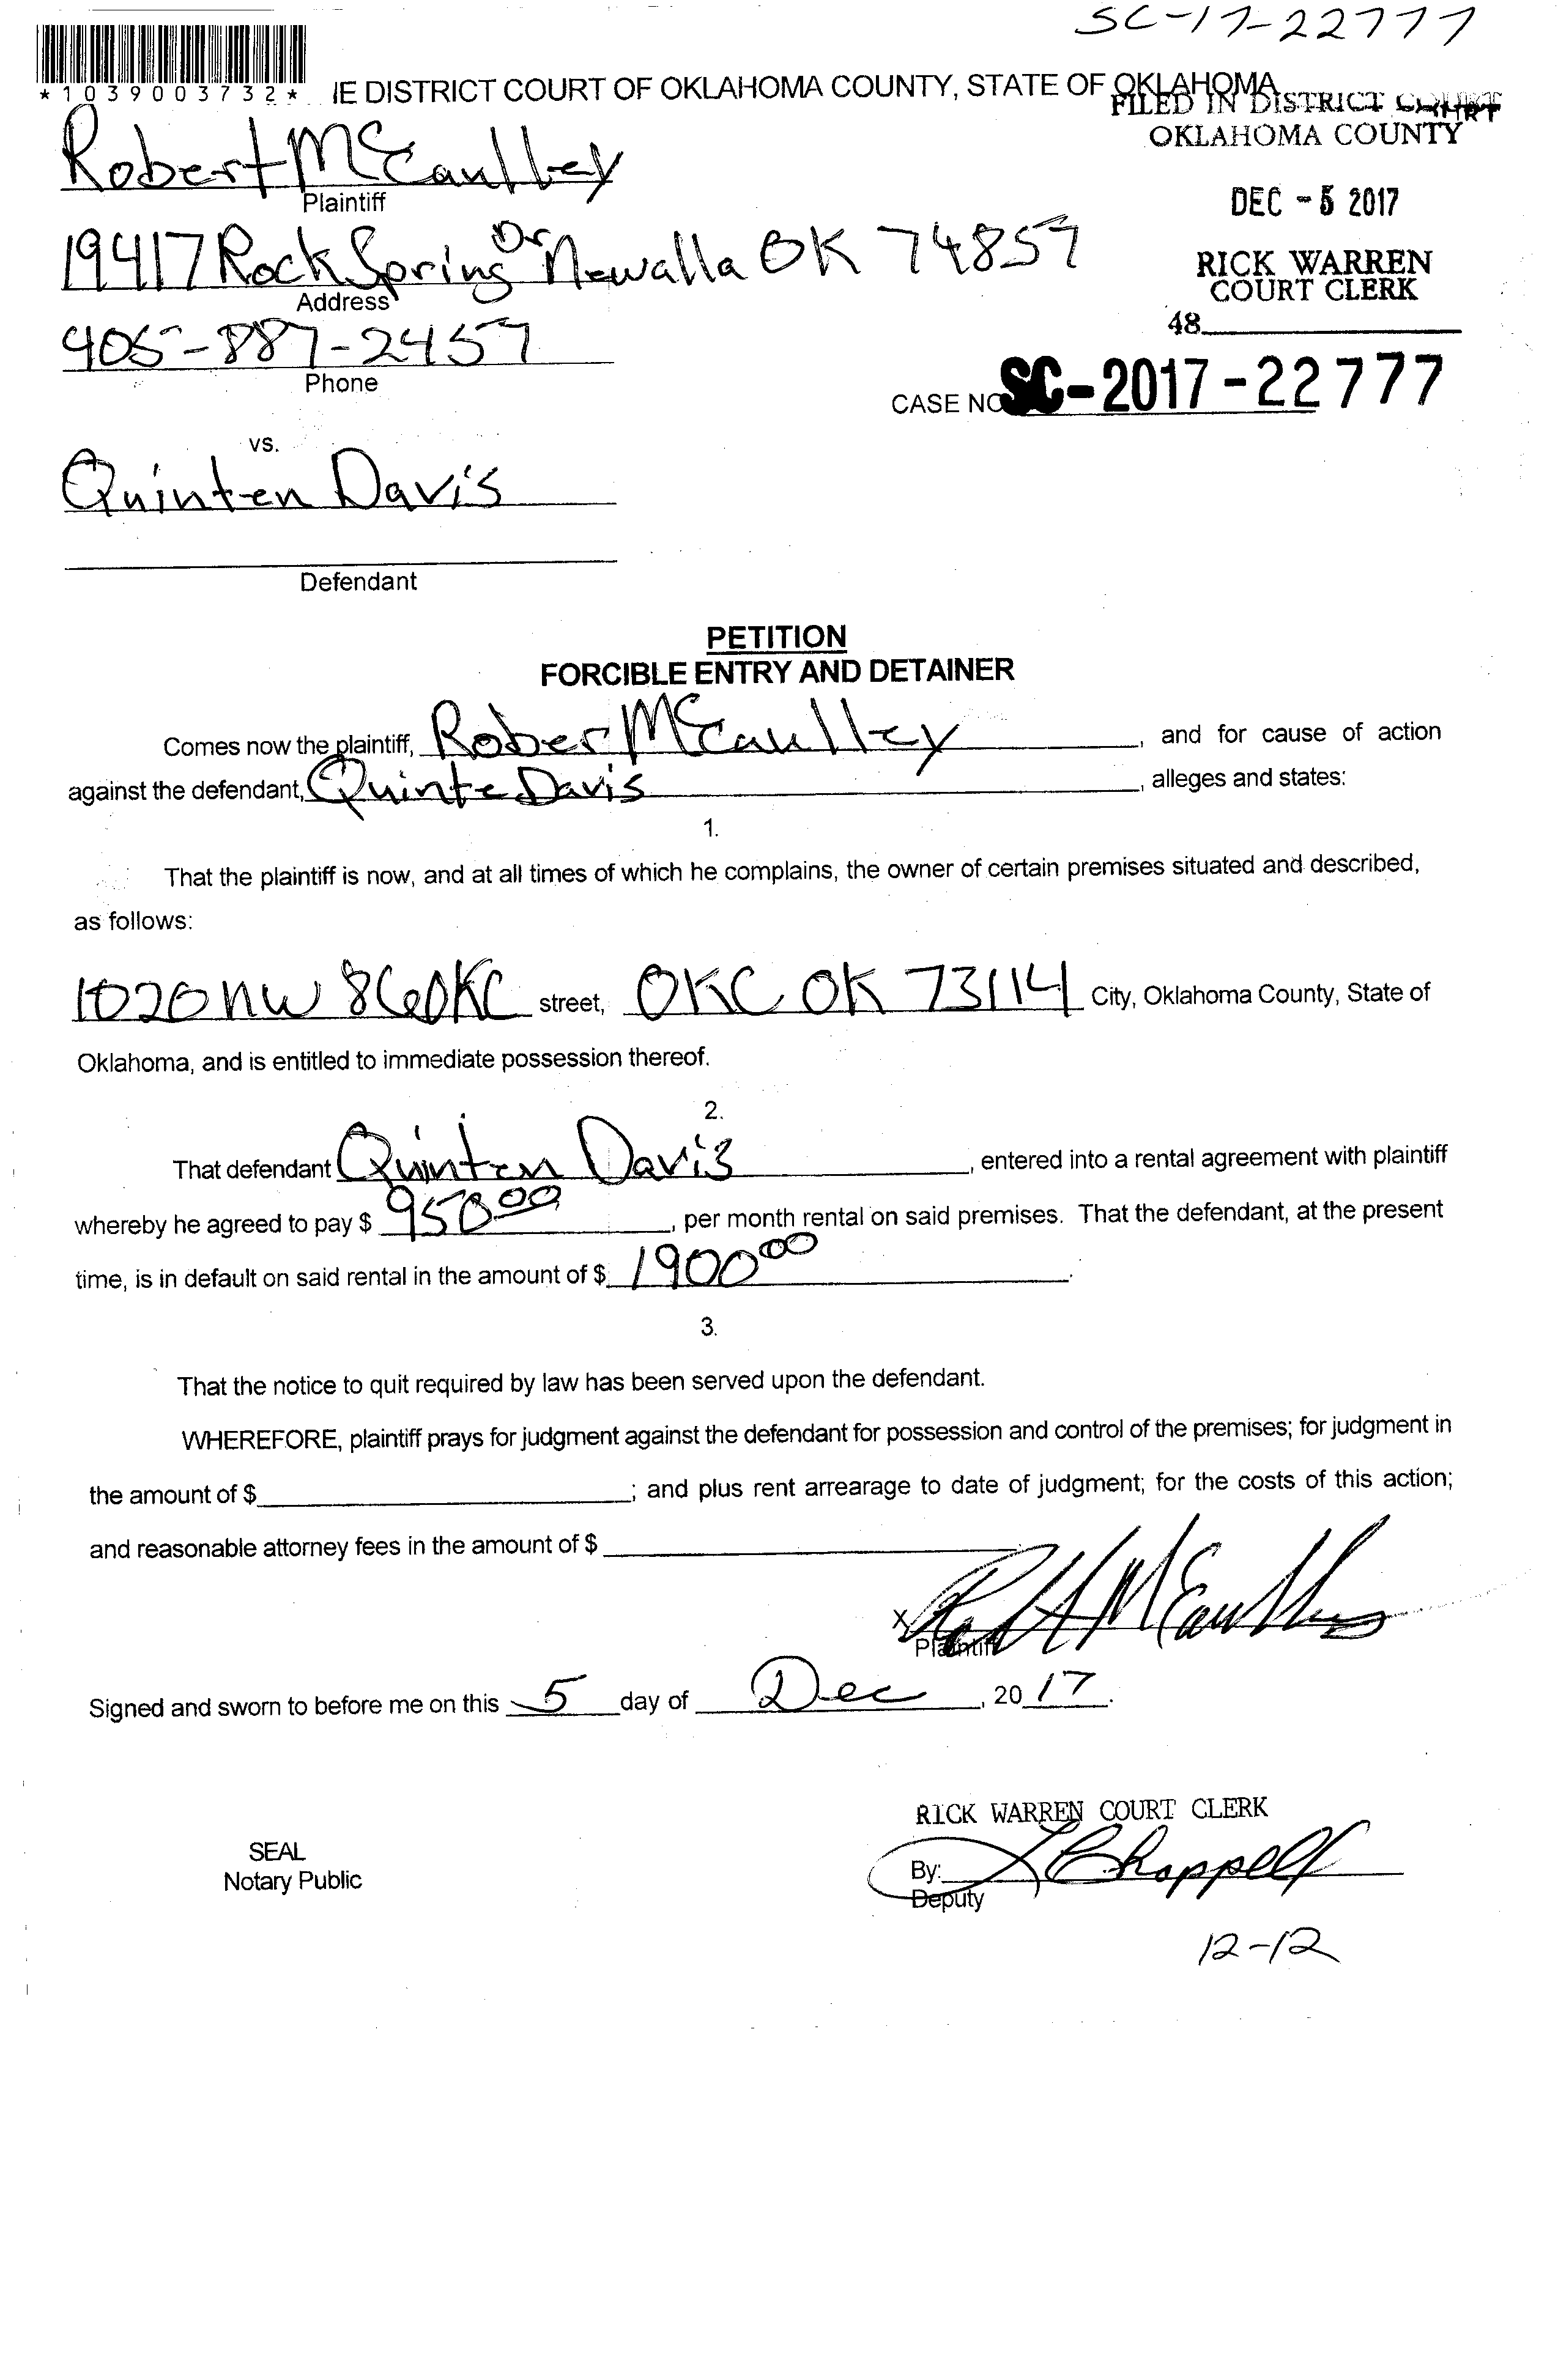 SC-17-22777
*1039003732*
IE DISTRICT COURT OF OKLAHOMA COUNTY, STATE OF OKLAHOMA
FILED IN DISTRICT COURT
OKLAHOMA COUNTY
Robert McCaulley
Plaintiff
DEC - 5 2017
19417 Rock Spring Dr Newalla OK 74857
Address
RICK WARREN
COURT CLERK
48
405-887-2457
Phone
CASE NO SC-2017-22777
vs.
Quinten Davis
Defendant
PETITION
FORCIBLE ENTRY AND DETAINER
Comes now the plaintiff, Rober McCaulley, and for cause of action
against the defendant, Quinte Davis, alleges and states:
1.
That the plaintiff is now, and at all times of which he complains, the owner of certain premises situated and described,
as follows:
1020 NW 86 OKC street, OKC OK 73114 City, Oklahoma County, State of
Oklahoma, and is entitled to immediate possession thereof.
2.
That defendant Quinten Davis, entered into a rental agreement with plaintiff
whereby he agreed to pay $ 950 00, per month rental on said premises. That the defendant, at the present
time, is in default on said rental in the amount of $ 1900 00.
3.
That the notice to quit required by law has been served upon the defendant.
WHEREFORE, plaintiff prays for judgment against the defendant for possession and control of the premises; for judgment in
the amount of $; and plus rent arrearage to date of judgment; for the costs of this action;
and reasonable attorney fees in the amount of $
X Robert McCaulley
Plaintiff
Signed and sworn to before me on this 5 day of Dec, 20 17.
RICK WARREN COURT CLERK
SEAL
Notary Public
By: L Chappell
Deputy
12-12